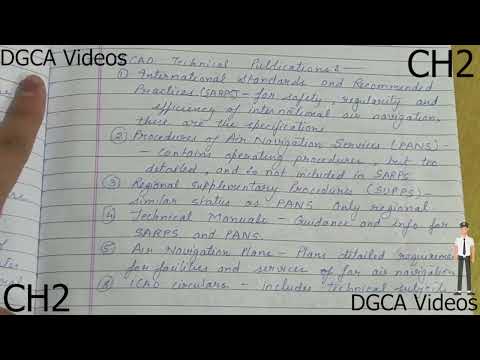 DGCA Videos
CH2
ICAO Technical Publications :-
① International Standards and Recommended
Practices (SARPS) - for safety, regularity and
efficiency of international air navigation,
these are the specifications
② Procedures of Air Navigation Services (PANS) -
- contains operating procedures, but too
detailed, and is not included in SARPS
③ Regional Supplementary Procedures (SUPPS) -
similar status as PANS Only regional
④ Technical Manuals - Guidance and info for
SARPS and PANS.
⑤ Air Navigation Plans - Plans detailed requireme
for facilities and services of for air navigation
⑥ ICAO circulars - includes technical
CH2
DGCA Videos